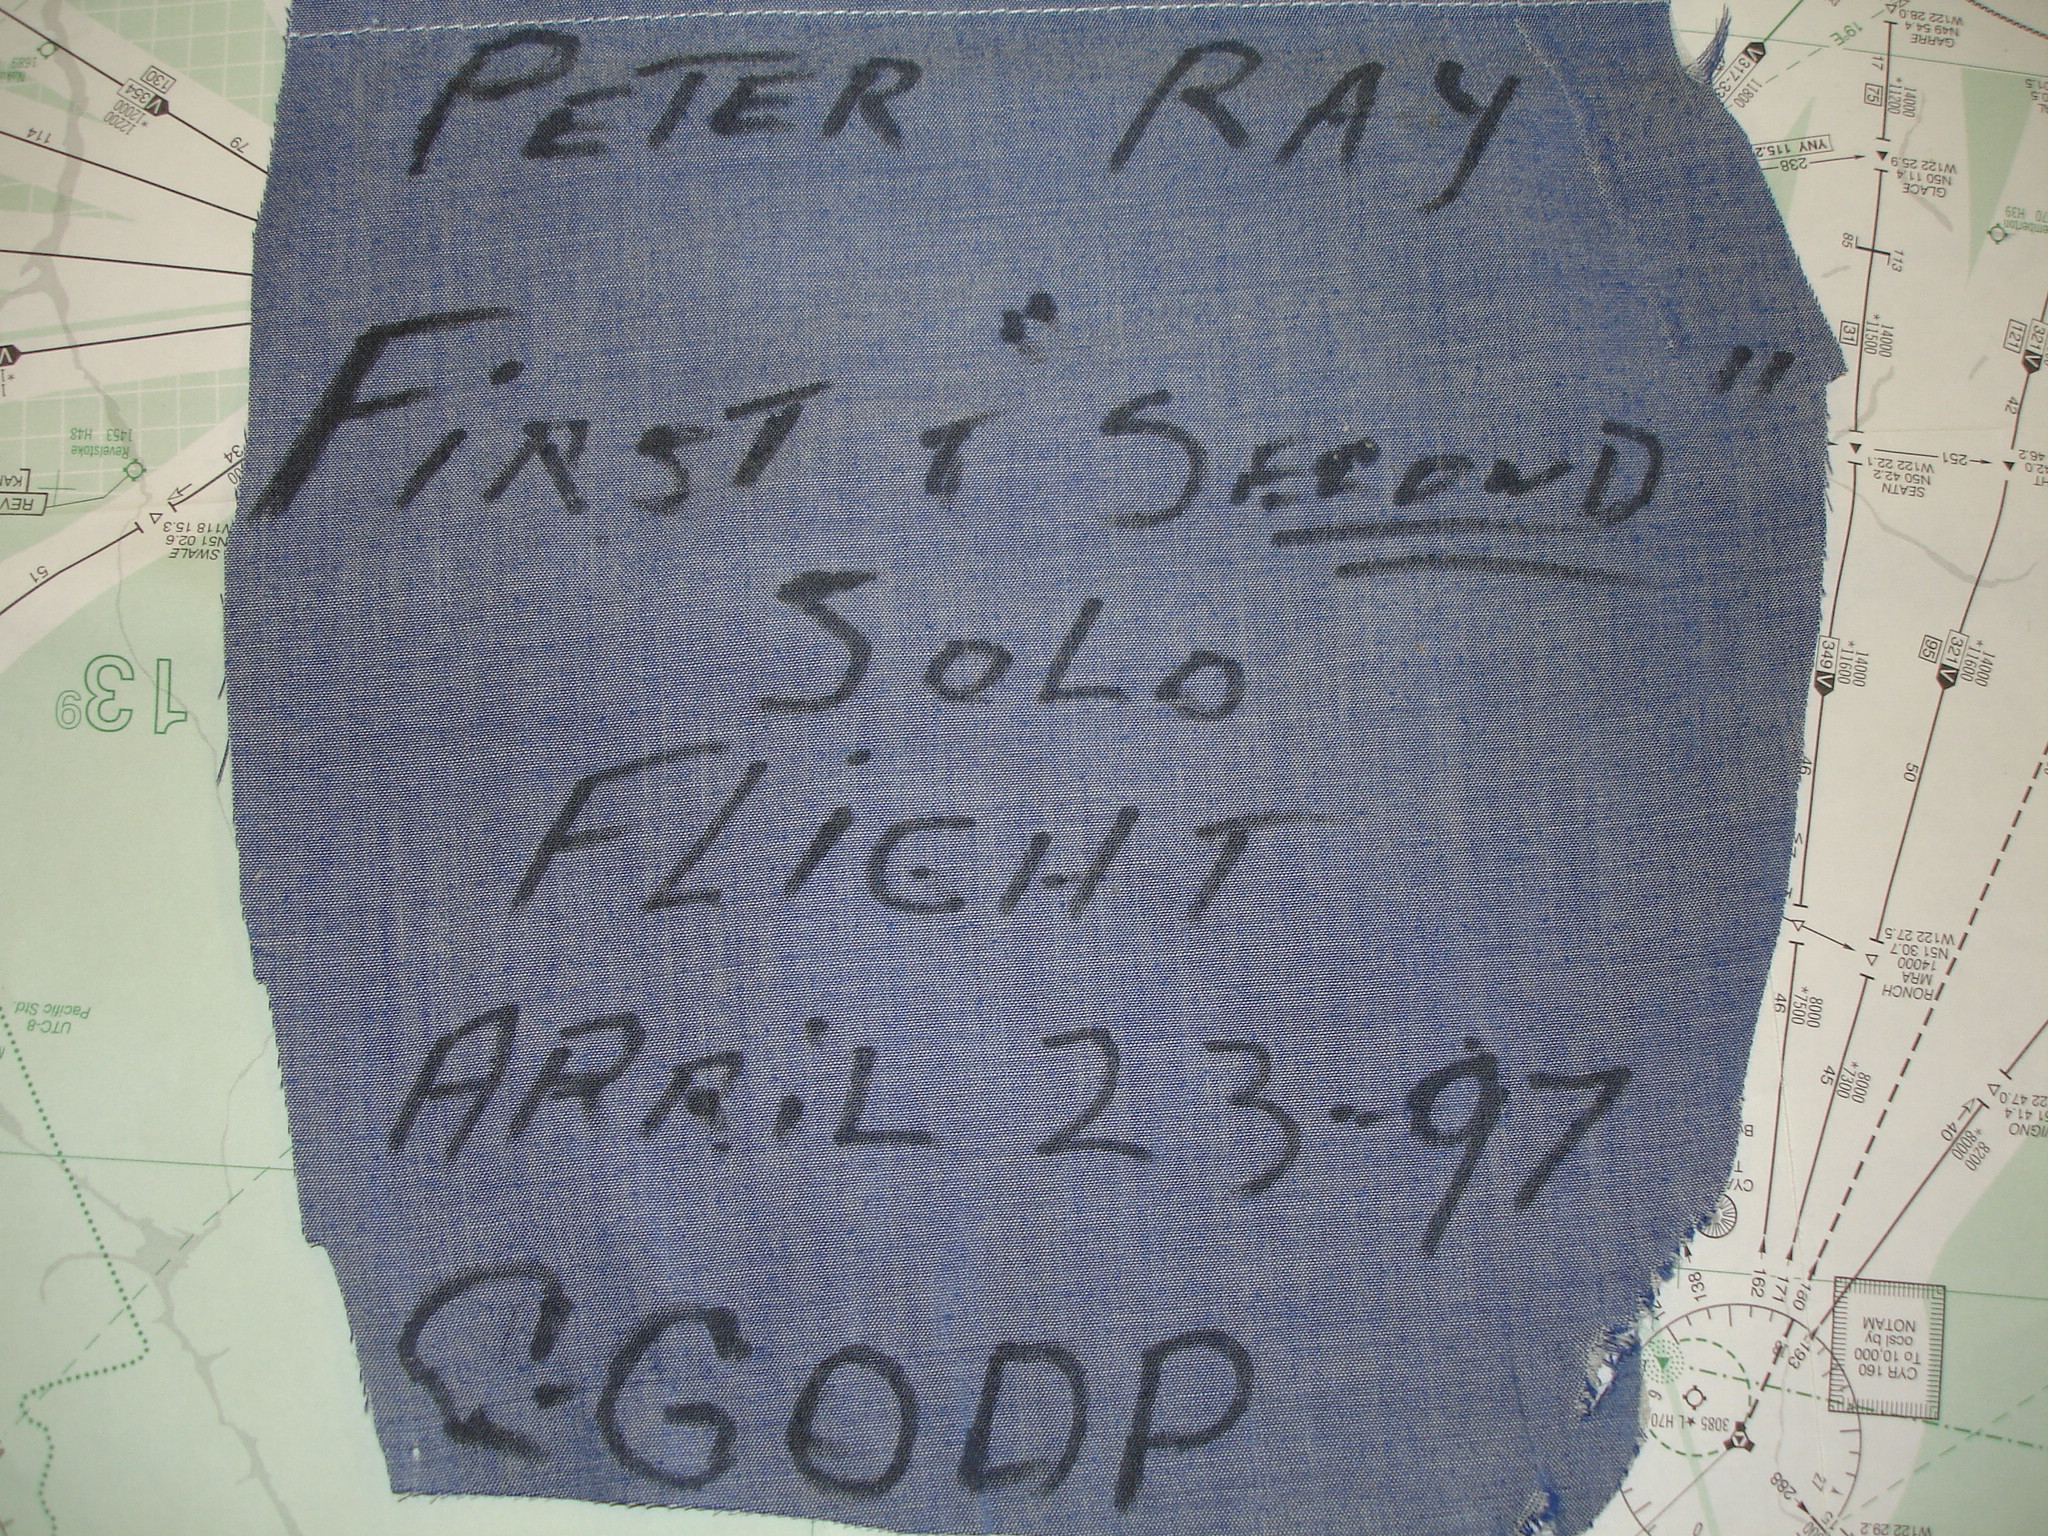 PETER RAY
FiRST + "SECOND"
SOLO
FLiGHT
APRiL 23-97
C-GODP
V354
130
12000
*12000
79
114
Revelstoke
1453 H48
SWALE
N51 02.6
W118 15.3
51
139
UTC-8
Pacific Std.
GARRE
N49 54.4
W122 28.0
17
75
14000
*11200
V317-33
11800
19°E
YNY 115.2
238
GLACE
N50 11.4
W122 25.9
85
113
31
14000
*11500
321V
121
42
251
SEATN
N50 42.2
W122 22.1
349V
14000
*11600
321V
95
14000
*11600
46
50
RONCH
MRA
14000
N51 30.7
W122 27.5
46
8000
*7500
45
8000
*7300
40
8200
*8000
138
162
171
180
193
CYR 160
To 10,000
ocsl by
NOTAM
3085 *L H70
288